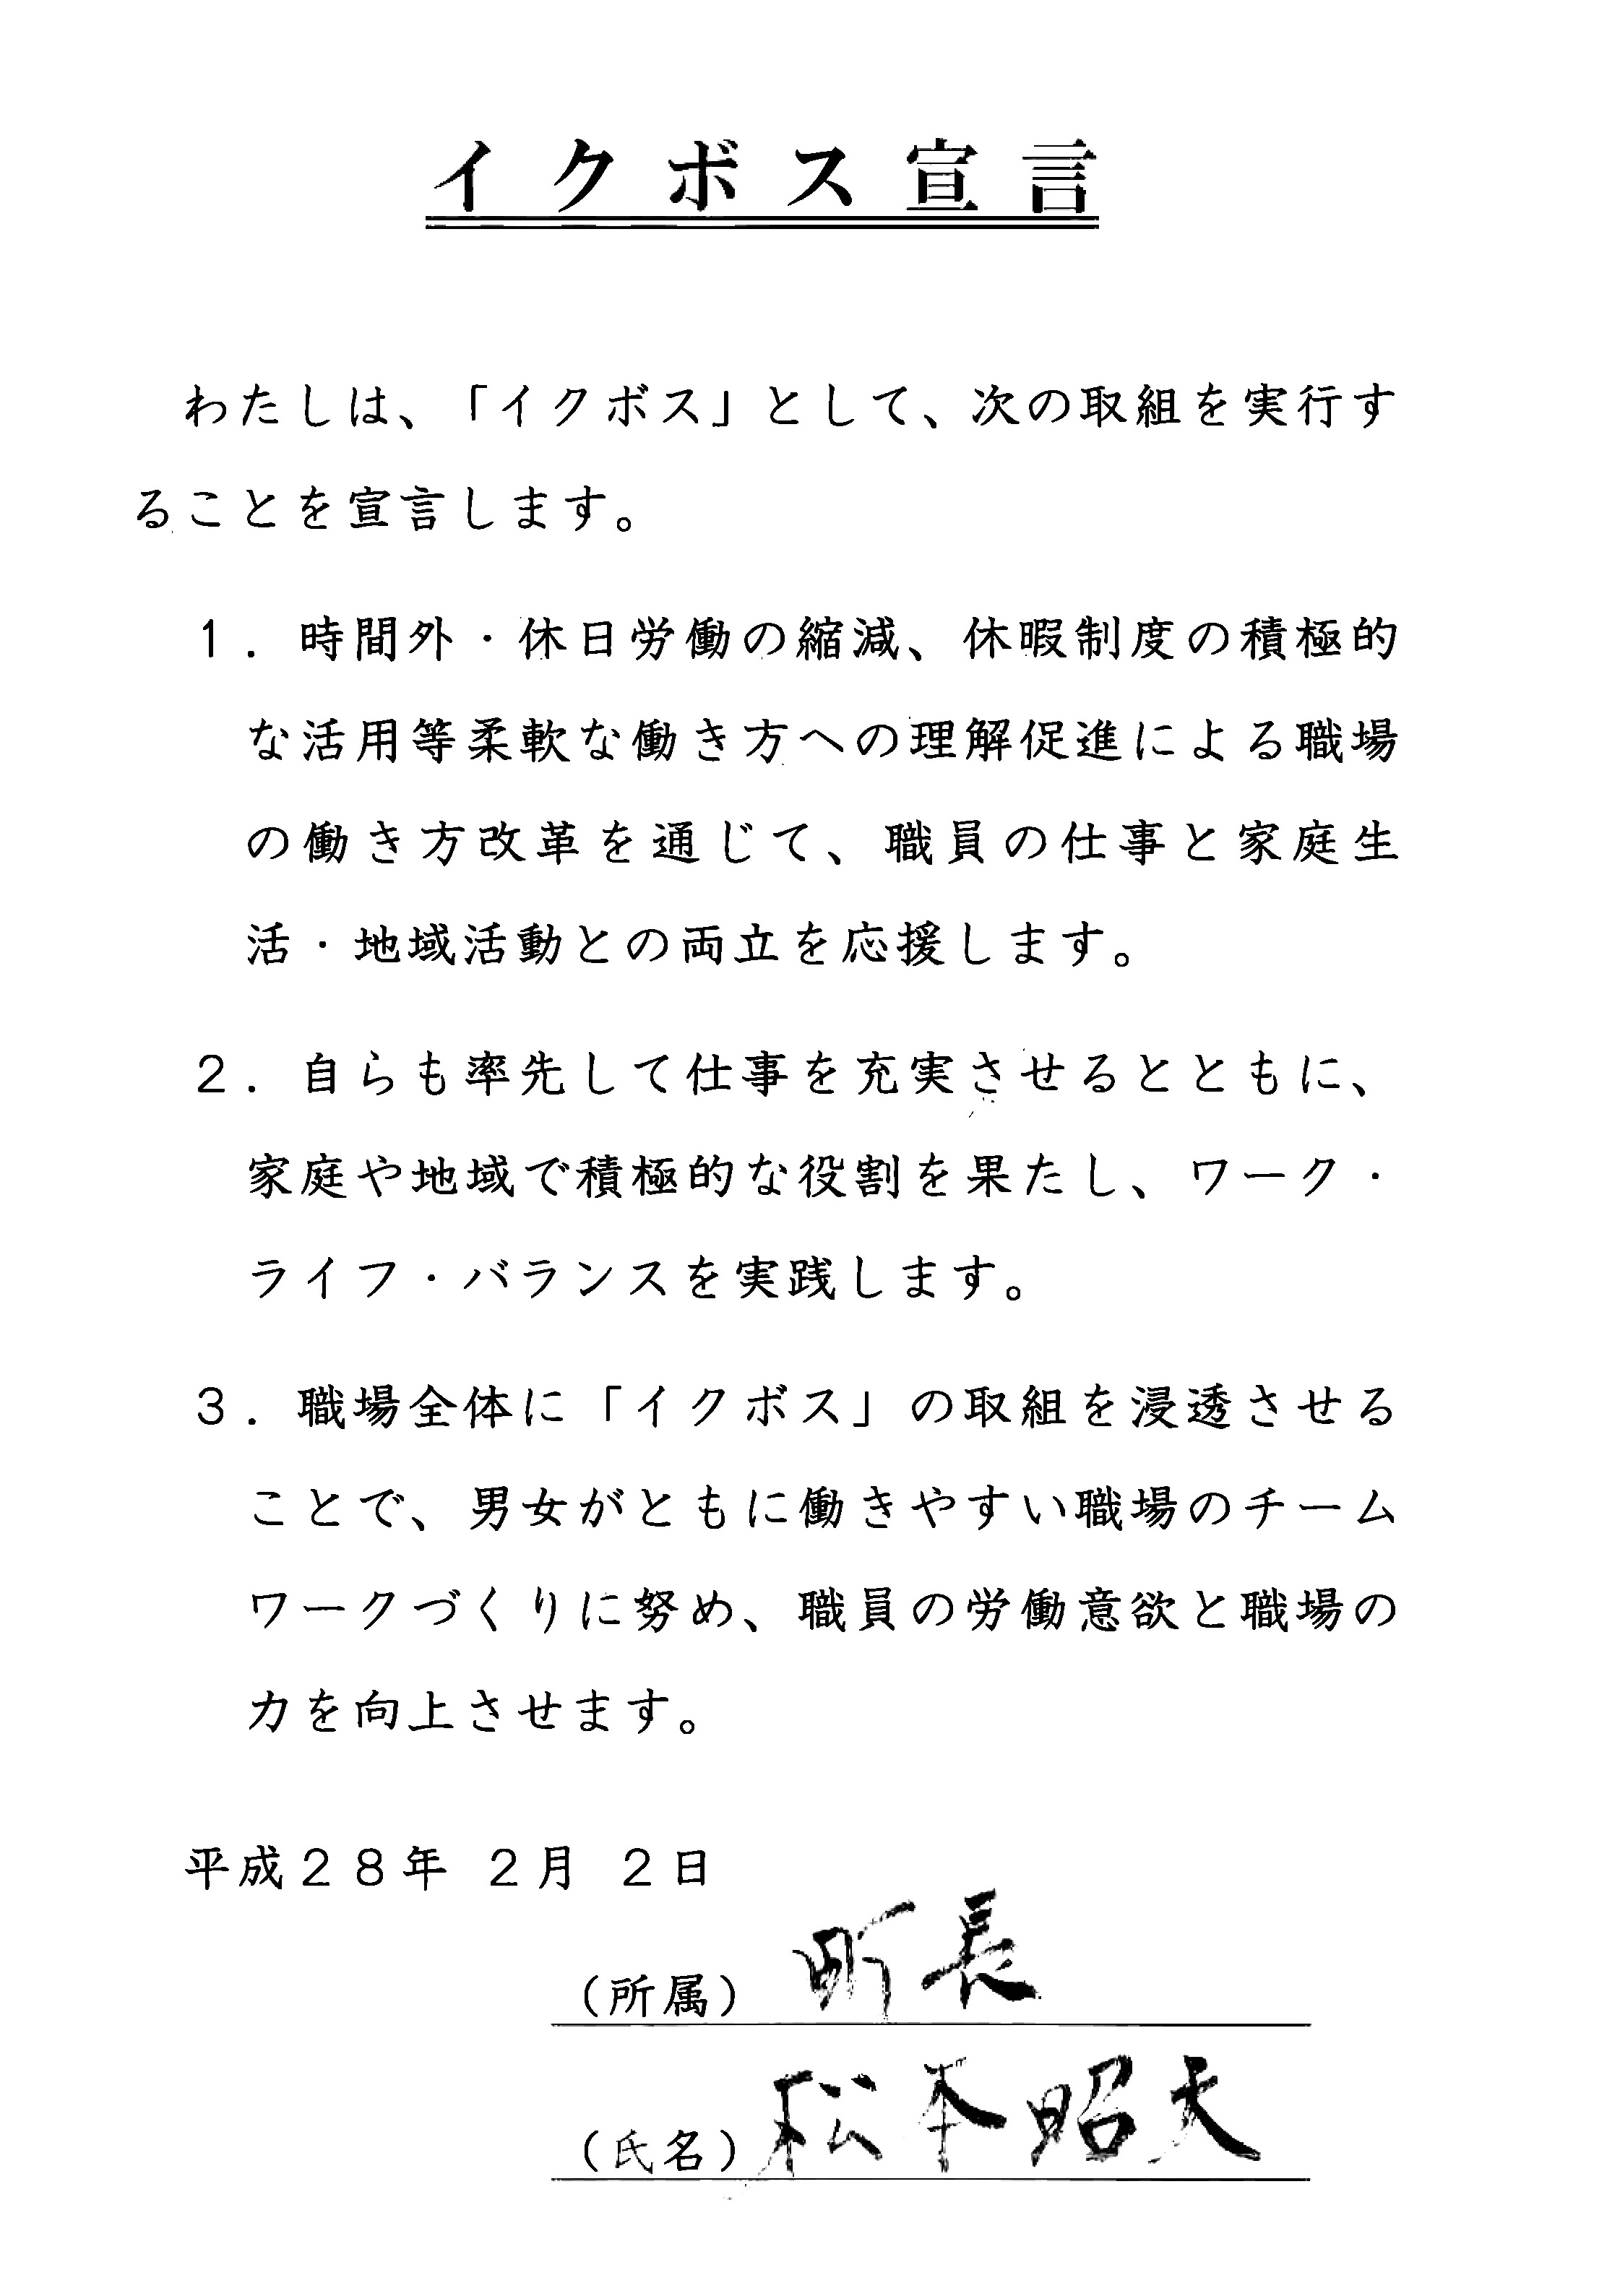 イクボス宣言
わたしは、「イクボス」として、次の取組を実行す
ることを宣言します。
１．時間外・休日労働の縮減、休暇制度の積極的
な活用等柔軟な働き方への理解促進による職場
の働き方改革を通じて、職員の仕事と家庭生
活・地域活動との両立を応援します。
２．自らも率先して仕事を充実させるとともに、
家庭や地域で積極的な役割を果たし、ワーク・
ライフ・バランスを実践します。
３．職場全体に「イクボス」の取組を浸透させる
ことで、男女がともに働きやすい職場のチーム
ワークづくりに努め、職員の労働意欲と職場の
力を向上させます。
平成２８年 ２月 ２日
（所属） 町長
（氏名） 松本昭夫